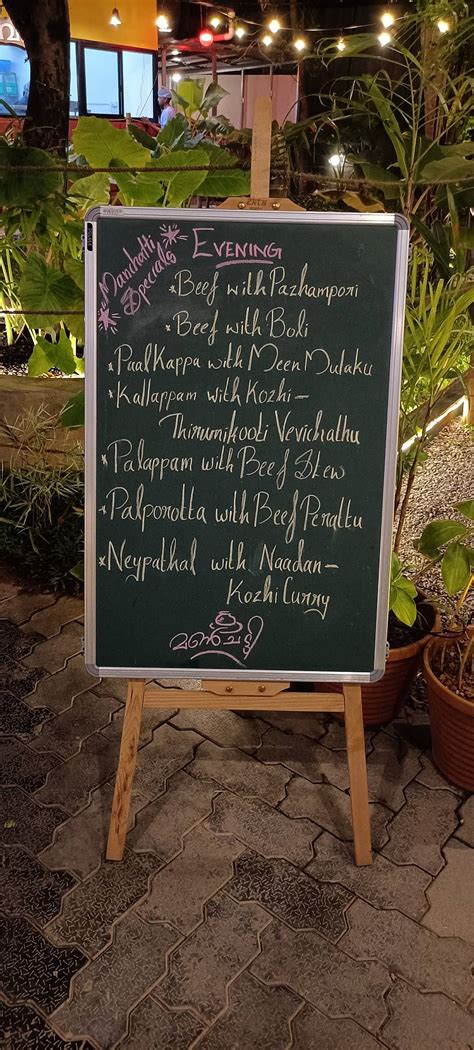 Manchatti
Specials
EVENING
*Beef with Pazhampori
*Beef with Boli
*Paal Kappa with Meen Mulaku
*Kallappam with Kozhi-
Thirumikooti Vevichathu
*Palappam with Beef Stew
*Palporotta with Beef Perattu
*Neypathal with Naadan-
Kozhi Curry
മൺചട്ടി